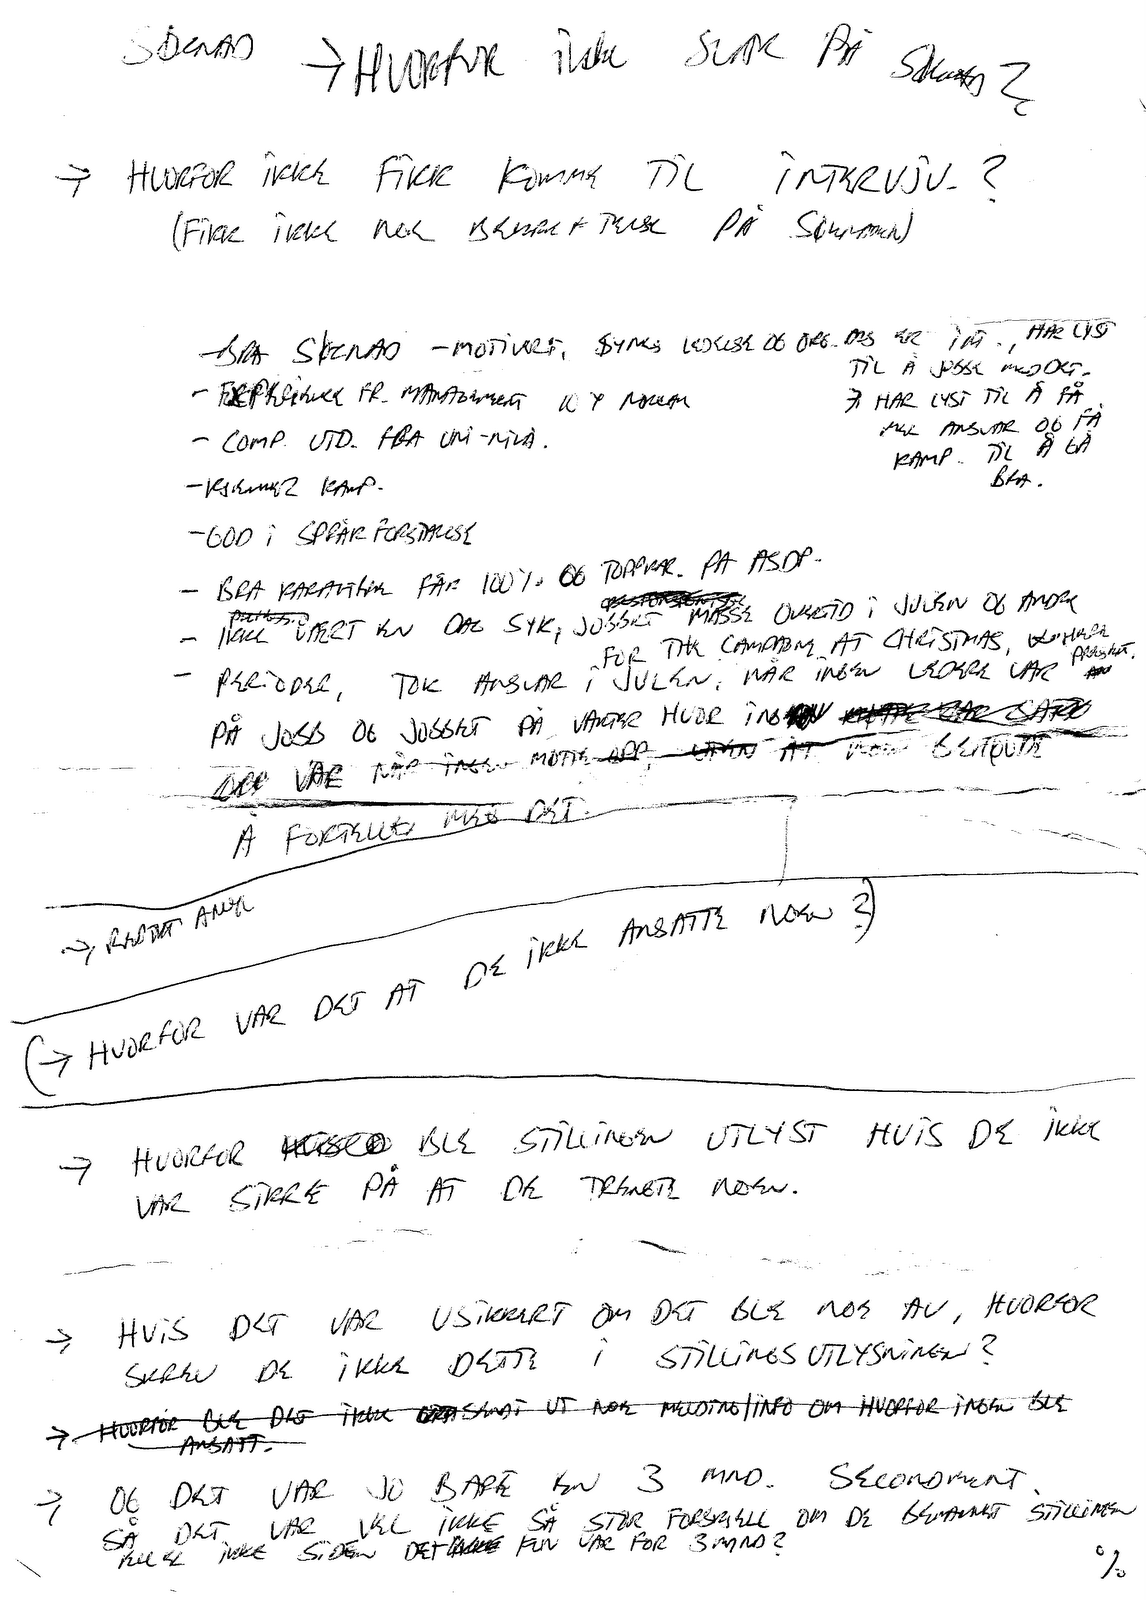 SØKNAD → HVORFOR IKKE SVAR PÅ SØKNAD?
→ HVORFOR IKKE FIKK KOMME TIL INTERVJU-?
(FIKK IKKE NOE BEKREFTELSE PÅ SØKNADEN)
- BRA SØKNAD - MOTIVERT, SYNES LEDELSE OG ORG. ER INT., HAR LYST
TIL Å JOBBE MED DET.
→ HAR LYST TIL Å FÅ
MER ANSVAR OG FÅ
KAMP. TIL Å GÅ
BRA.
- FR. MANAGEMENT 10 Y
- COMP. UTD. FRA UNI-NIVÅ.
- KJENNER KAMP.
- GOD I SPRÅKFORSTÅELSE
- BRA KARAKTERER FÅR 100% OG TOPPKAR. PÅ ASDP.
- IKKE VÆRT EN DAG SYK, JOBBET MASSE OVERTID I JULEN OG ANDRE
FOR THE CAMPAIGN AT CHRISTMAS,
- PERIODER, TOK ANSVAR I JULEN, NÅR INGEN LEDERE VAR
PÅ JOBB OG JOBBET PÅ VAKTER HVOR INGEN
OPP VAR NÅR INGEN MØTTE OPP, UTEN AT NOEN BEHØVDE
Å FORTELLE MEG DET.
→ REDDET
(→ HVORFOR VAR DET AT DE IKKE ANSATTE NOEN?)
→ HVORFOR BLE STILLINGEN UTLYST HVIS DE IKKE
VAR SIKRE PÅ AT DE TRENGTE NOEN.
→ HVIS DET VAR USIKKERT OM DET BLE NOE AV, HVORFOR
SKREV DE IKKE DETTE I STILLINGSUTLYSNINGEN?
→ HVORFOR BLE DET IKKE SENDT UT NOE MELDING/INFO OM HVORFOR INGEN BLE
ANSATT.
→ OG DET VAR JO BARE EN 3 MND. SECONDMENT,
SÅ DET VAR VEL IKKE SÅ STOR FORSKJELL OM DE BEMANNET STILLINGEN
ELLER IKKE SIDEN DET KUN VAR FOR 3 MND?
%